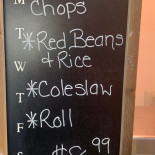 M Chops
T *Red Beans
W + Rice
T *Coleslaw
F *Roll
S 99